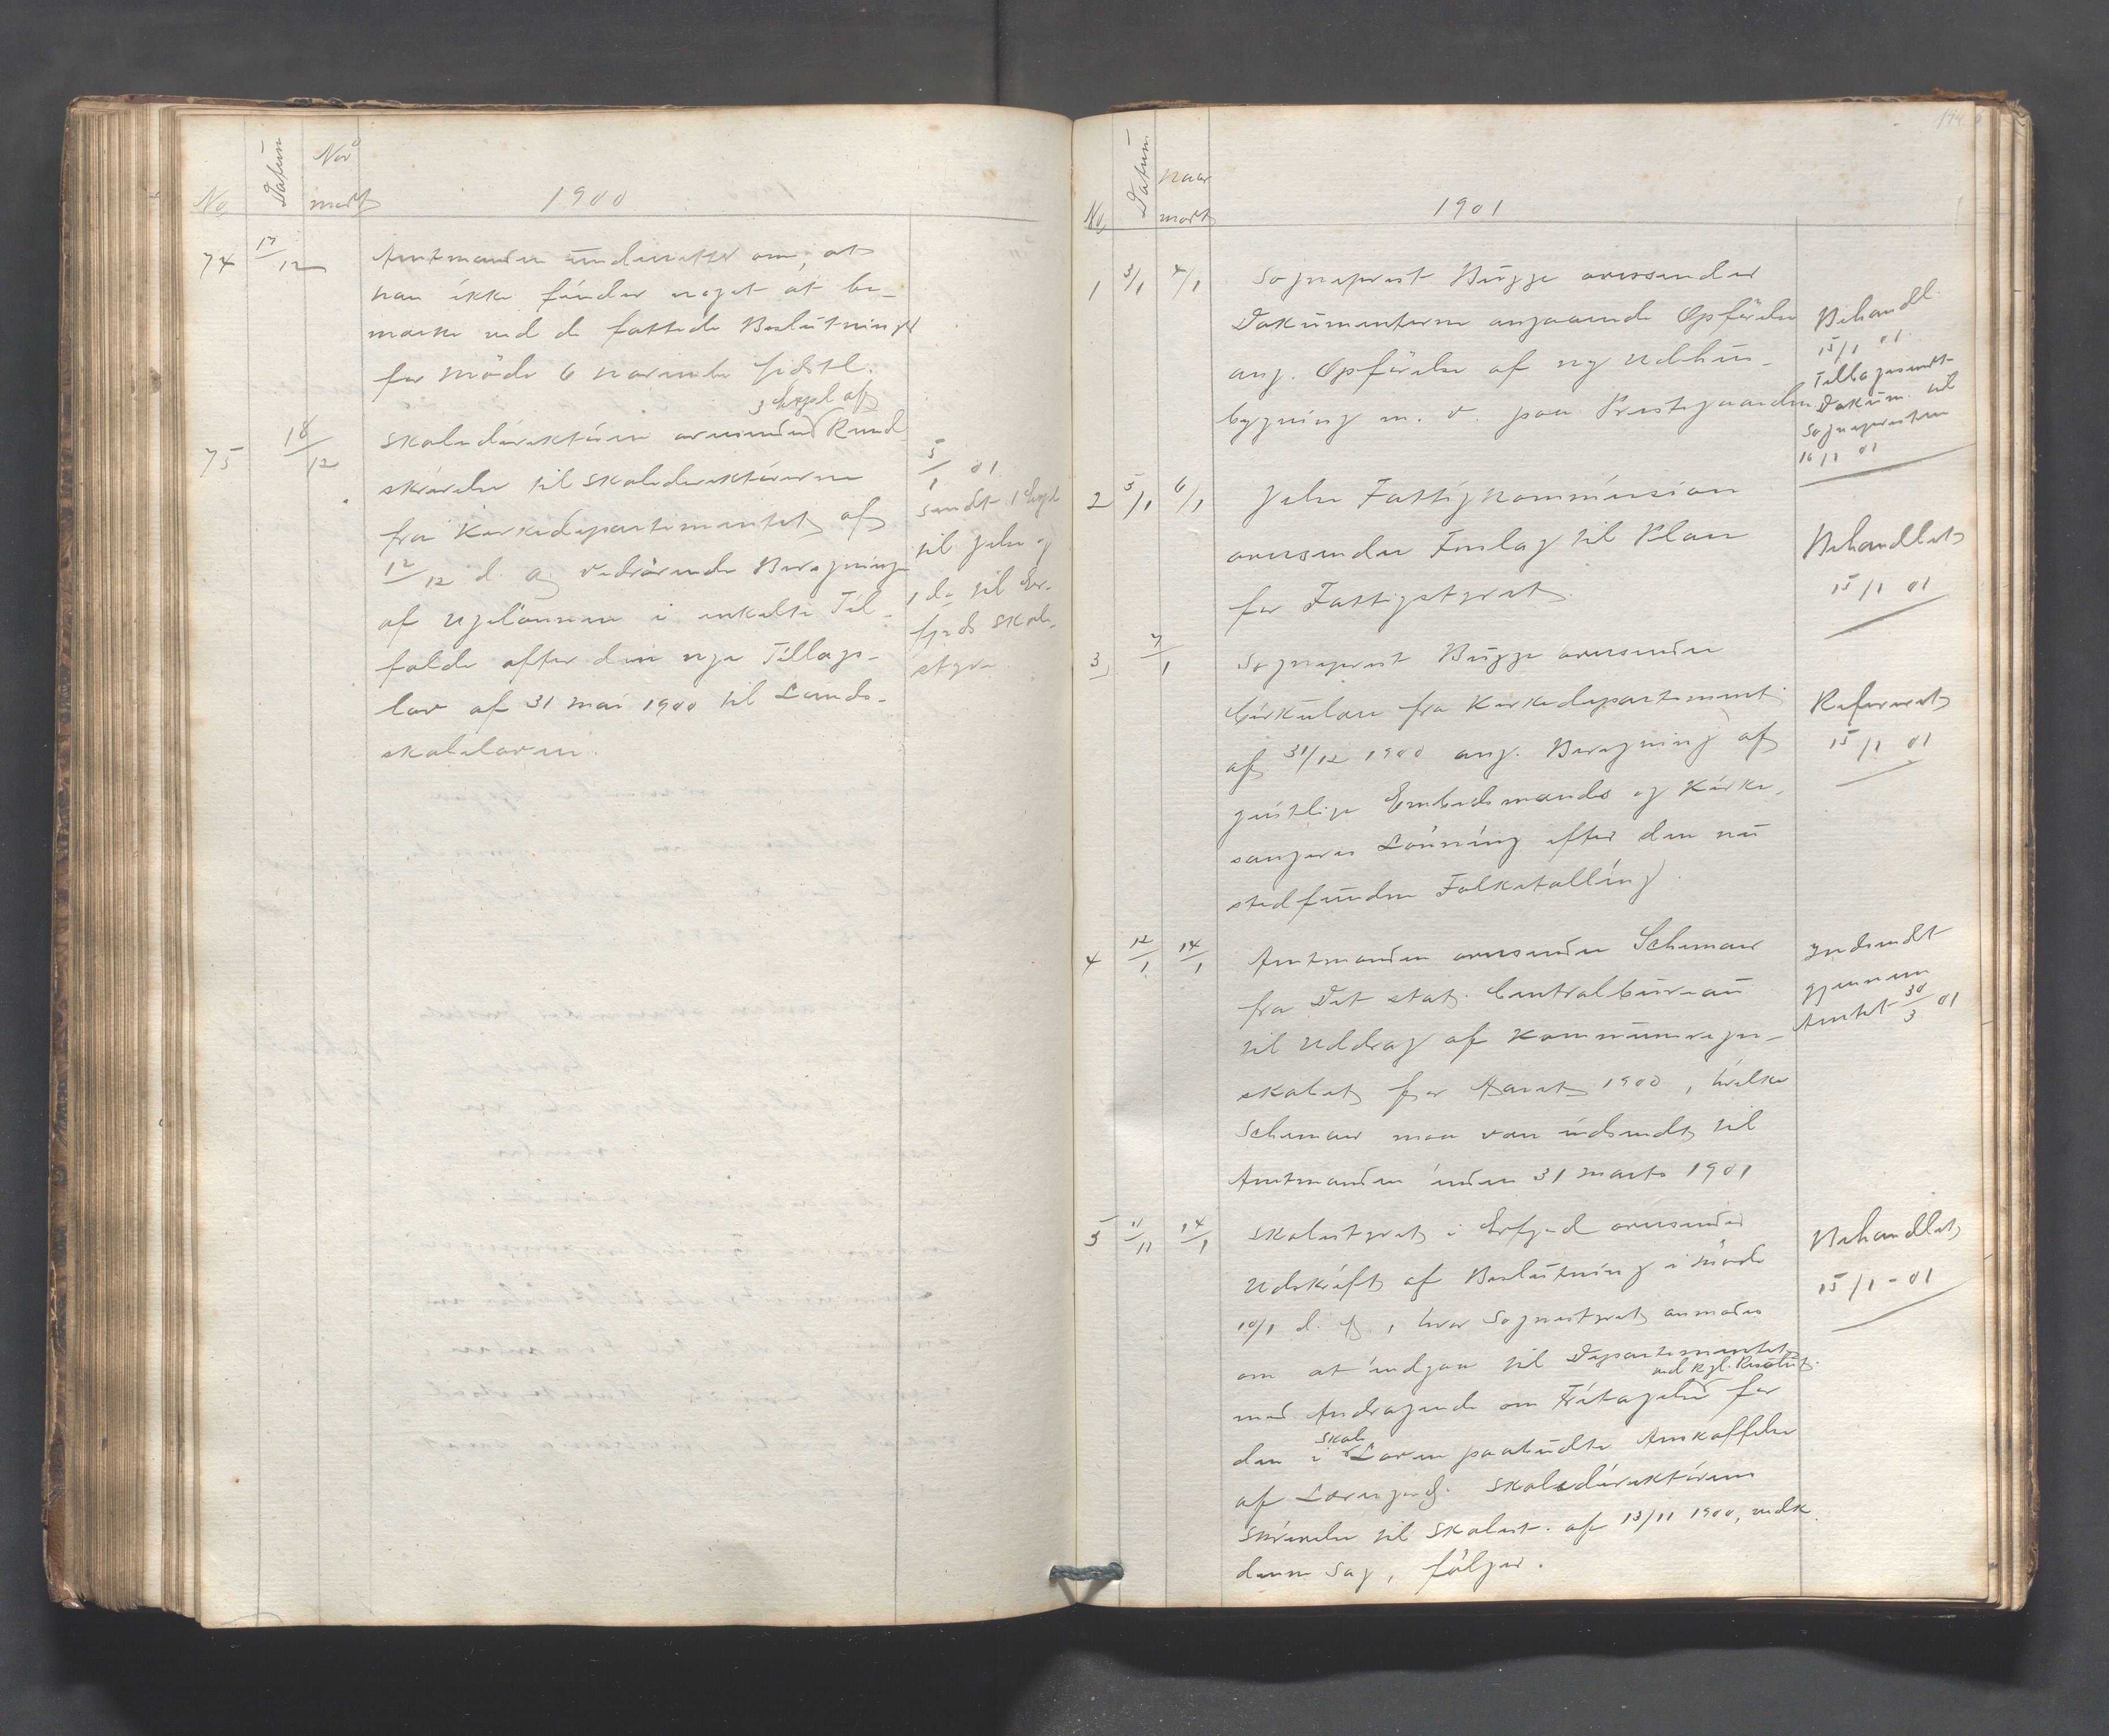 No
Datum
Naar
modt
1900
74
17/12
Amtmanden underretter om, at
han ikke finder noget at be-
mærke ved de fattede Beslutninger
for møde 6 november sidstl.
75
18/12
3 Expl af
Skoledirektøren oversender Rund
skrivelse til Skoledirektørerne
fra Kirkedepartementet af
12/12 d. a. vedrørende Beregninger
af Ugelønnen i enkelte Til-
fælde efter den nye Tillægs-
lov af 31 mai 1900 til Lands-
skoleloven.
5/1 01
sendt 1 Expl
til Jelse og
1 do til Er-
fjords Skole-
styre.
No
Datum
Naar
modt
1901
1
3/1
4/1
Sogneprest Bugge oversender
Dokumenterne angaaende Opførelse
ang. Opførelse af ny Udhus-
bygning m. v. paa Prestegaarden
Behandl.
15/1 01.
Tilbagesendt
Dokum. til
Sognepresten
16/1 01
2
5/1
6/1
Jelse Fattigkommission
oversender Forslag til Plan
for Fattigstyret.
Behandlet
15/1 01
3
7/1
Sogneprest Bugge oversender
Cirkulære fra Kirkedepartement.
af 31/12 1900 ang. Beregning af
geistlige Embedsmænds og Kirke-
sangeres Lønning efter den nu
stedfundne Folketælling.
Refereret
15/1 01
4
12/1
14/1
Amtmanden oversender Schemaer
fra Det stat. Centralbureau
til Uddrag af Kommuneregn-
skabet for Aaret 1900, hvilke
Schemaer maa være indsendt til
Amtmanden inden 31 marts 1901
Indsendt
gjennem
Amtet 30/3 01
5
11/11
14/1
Skolestyret i Erfjord oversender
Udskrift af Beslutning i møde
10/1 d. A., hvor Sognestyret anmodes
om at indgaa til Departementet
ved kgl. Resolut.
med Andragende om Fritagelse for
den i Skole Loven paabudte Anskaffelse
af Lærerjord. Skoledirektørens
Skrivelse til Skolest. af 13/11 1900, vedk.
denne Sag, følger.
Behandlet
15/1 - 01